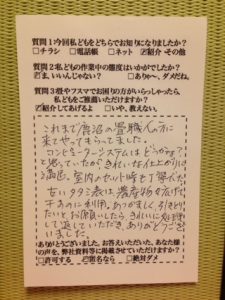 質問1 今回私どもをどちらでお知りになりましたか?
□チラシ □電話帳 □ネット ☑紹介 その他
質問2 私どもの作業中の態度はいかがでしたか?
☑ま、いいんじゃない? □ありゃ~、ダメだね。
質問3 畳やフスマでお困りの方がいらっしゃったら、
私どもをご推薦いただけますか?
☑紹介してあげるよ □いや、教えない。
これまで鹿沼の畳職人の方に
来てやってもらってました。
コンピューターシステムはどうかな?
と思っていたが、きれいな仕上がりに
満足。室内のセット時も丁寧だ
古いタタミ表は農産物を広げて
干すのに利用。あつかましく引きとり
たいとお願いしたらきれいに処理
して返していただき、ありがとうござ
いました。
ありがとうございました。お答えいただいた、あなた様
の声を、弊社資料等に掲載させていただけますか?
□許可する ☑匿名なら □絶対ダメ